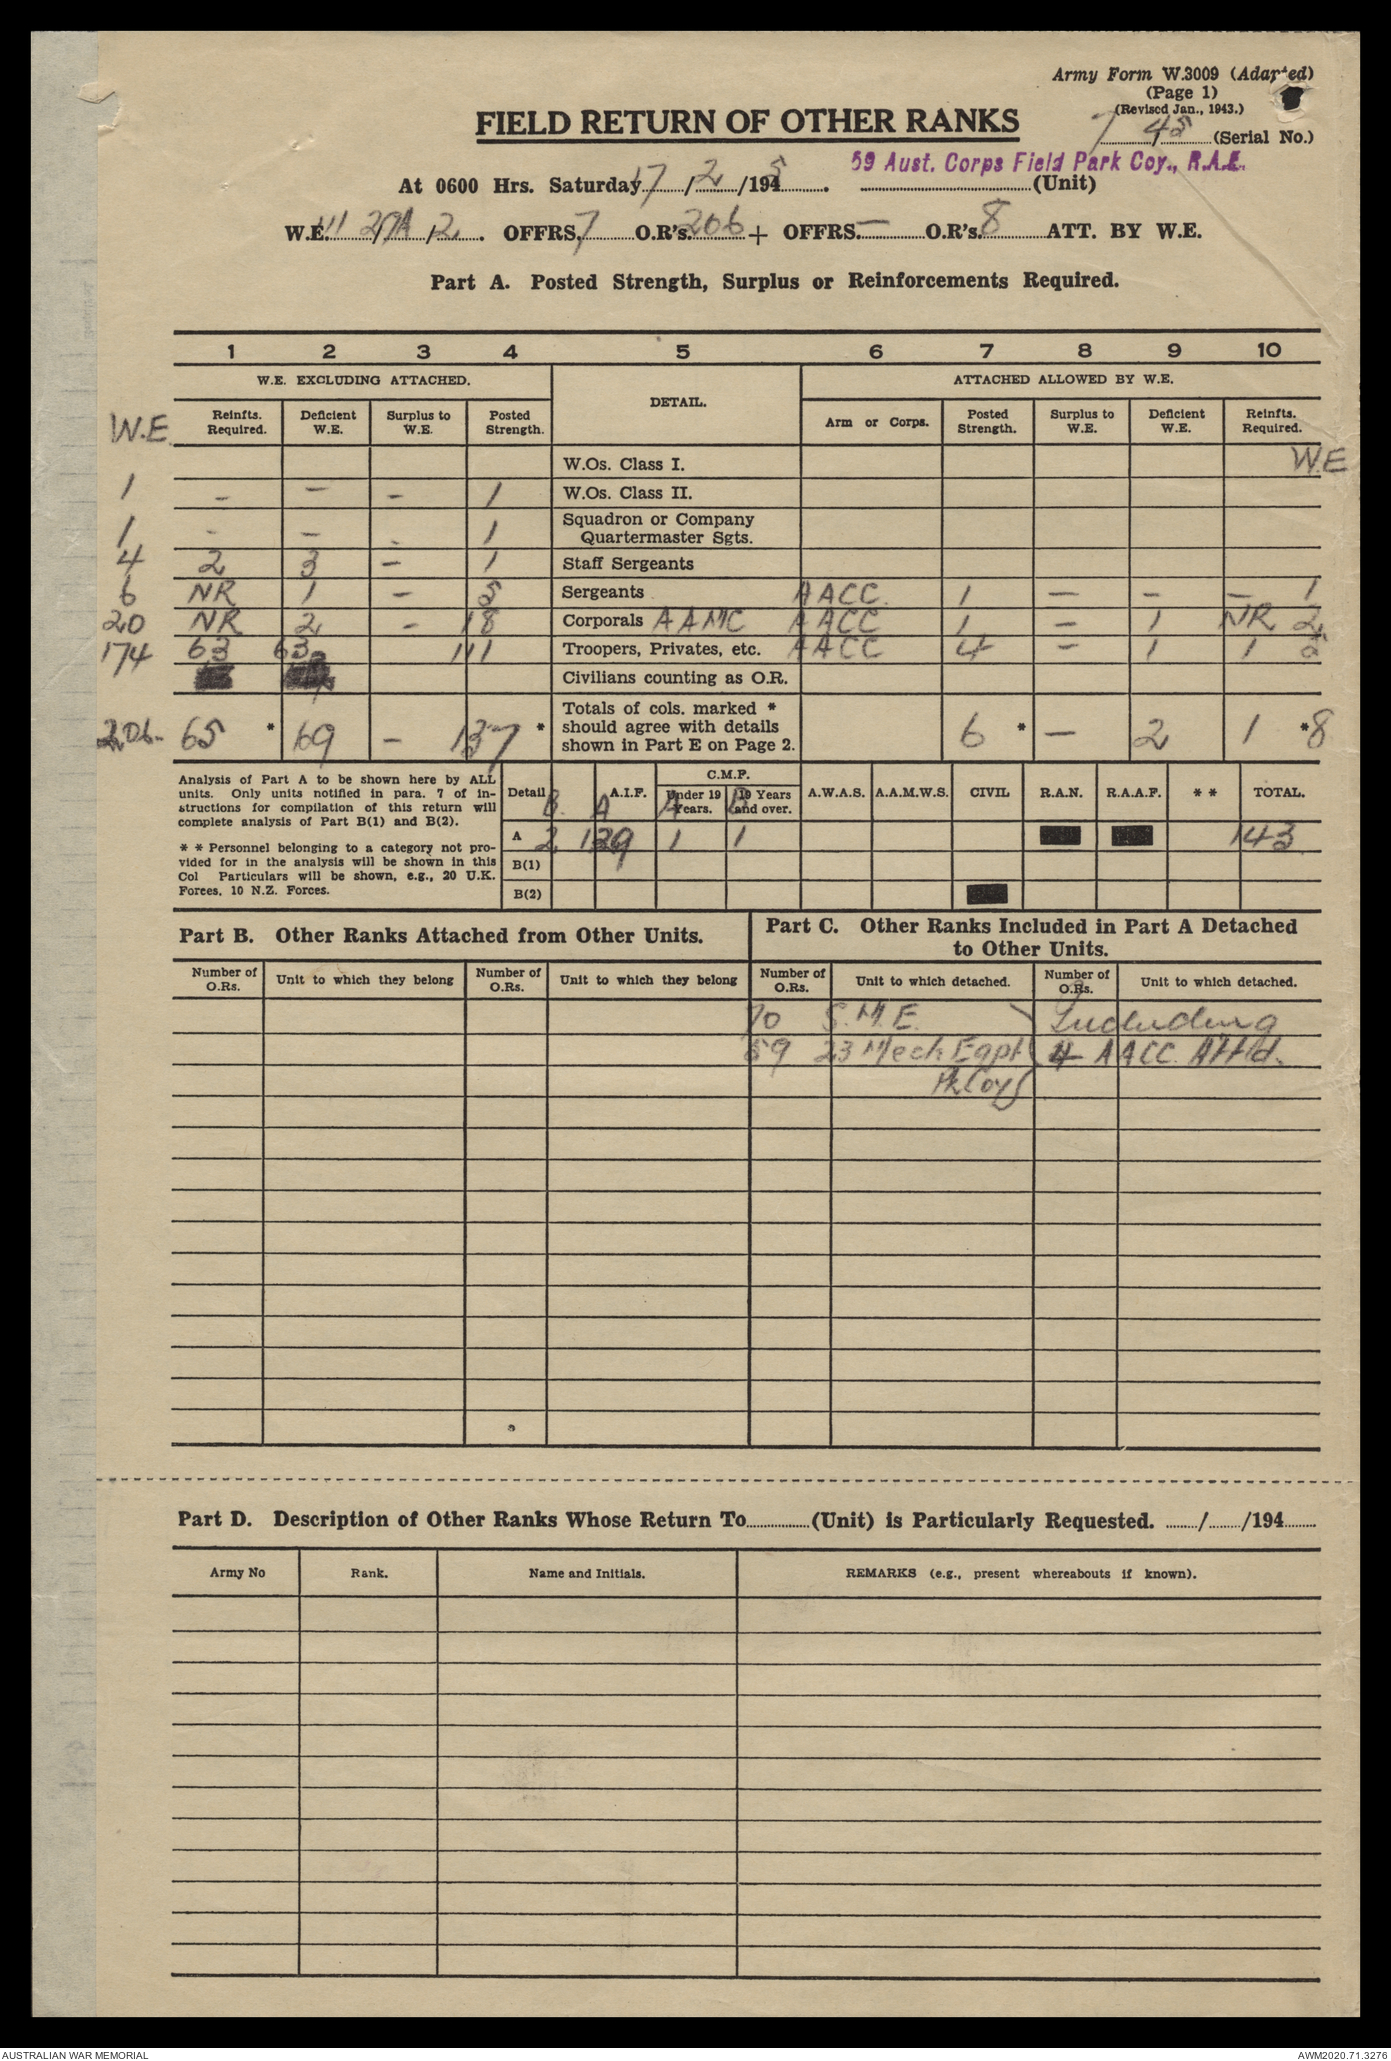 Army Form W.3009 (Adapted)
(Page 1)
(Revised Jan., 1943.)
FIELD RETURN OF OTHER RANKS
7 / 45 (Serial No.)
59 Aust. Corps Field Park Coy., R.A.E.
At 0600 Hrs. Saturday 17 / 2 /1945. (Unit)
W.E. 111 / 27A / 2. OFFRS. 7 O.R's. 206 + OFFRS. — O.R's. 8 ATT. BY W.E.
Part A. Posted Strength, Surplus or Reinforcements Required.
1 2 3 4 5 6 7 8 9 10
W.E. EXCLUDING ATTACHED. DETAIL. ATTACHED ALLOWED BY W.E.
W.E. Reinfts. Required. Deficient W.E. Surplus to W.E. Posted Strength. Arm or Corps. Posted Strength. Surplus to W.E. Deficient W.E. Reinfts. Required.
W.Os. Class I. W.E
1 – – – 1 W.Os. Class II.
1 – – – 1 Squadron or Company Quartermaster Sgts.
4 2 3 – 1 Staff Sergeants
6 NR 1 – 5 Sergeants AACC 1 – – – 1
20 NR 2 – 18 Corporals AAMC AACC 1 – 1 NR 2
174 63 63 111 Troopers, Privates, etc. AACC 4 – 1 1 5
Civilians counting as O.R.
206 65 * 69 – 137 * Totals of cols. marked * should agree with details shown in Part E on Page 2. 6 * – 2 1 * 8
Analysis of Part A to be shown here by ALL
units. Only units notified in para. 7 of in-
structions for compilation of this return will
complete analysis of Part B(1) and B(2).
* * Personnel belonging to a category not pro-
vided for in the analysis will be shown in this
Col Particulars will be shown, e.g., 20 U.K.
Forces, 10 N.Z. Forces.
C.M.F.
Detail B. A A.I.F. A Under 19 Years. B 19 Years and over. A.W.A.S. A.A.M.W.S. CIVIL R.A.N. R.A.A.F. * * TOTAL.
A 2 139 1 1 143
B(1)
B(2)
Part B. Other Ranks Attached from Other Units.
Part C. Other Ranks Included in Part A Detached
to Other Units.
Number of O.Rs. Unit to which they belong Number of O.Rs. Unit to which they belong Number of O.Rs. Unit to which detached. Number of O.Rs. Unit to which detached.
70 S.M.E. Including
59 23 Mech Eqpt 4 AACC Attd.
Pk Coy
Part D. Description of Other Ranks Whose Return To (Unit) is Particularly Requested. / /194
Army No Rank. Name and Initials. REMARKS (e.g., present whereabouts if known).
AUSTRALIAN WAR MEMORIAL AWM2020.71.3276